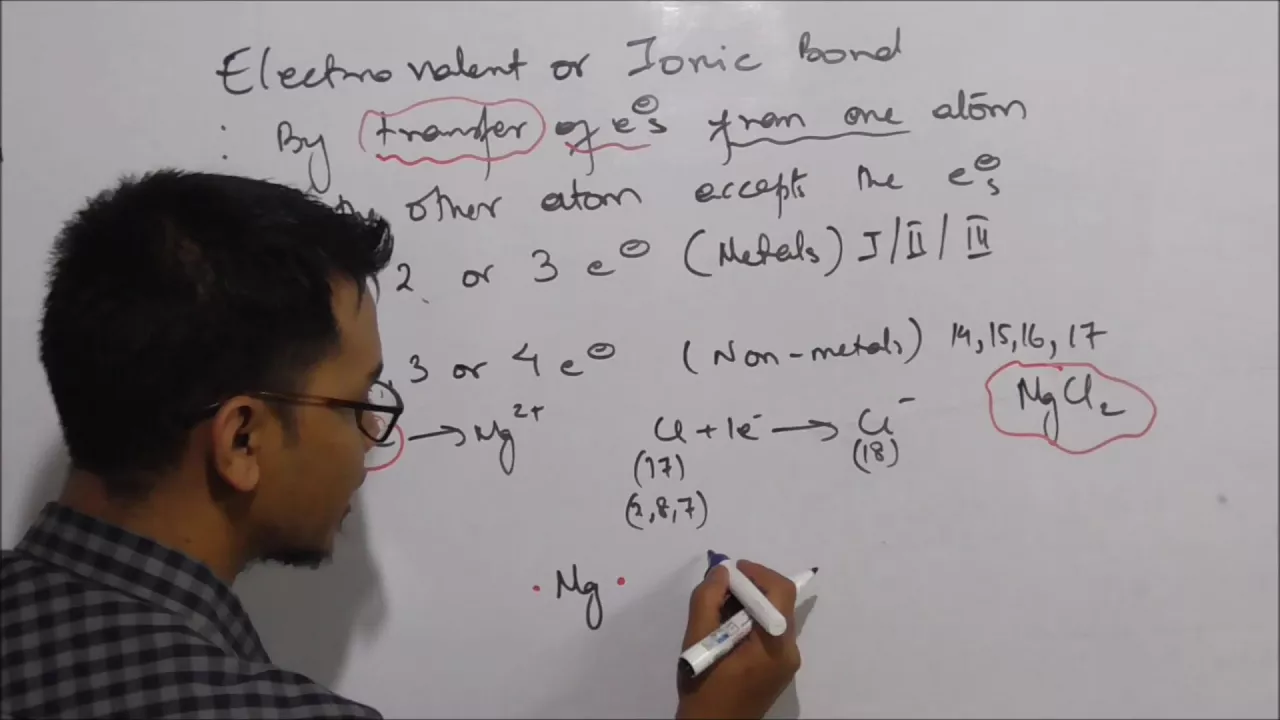 Electrovalent or Ionic Bond
: By transfer of e⊖s from one atom
the other atom accepts the e⊖s
2 or 3 e⊖ (Metals) I/II/III
3 or 4 e⊖ (Non-metals) 14,15,16,17
→ Mg²⁺ Cl + 1e⁻ → Cl⁻ MgCl₂
(17) (18)
(2,8,7)
· Mg ·